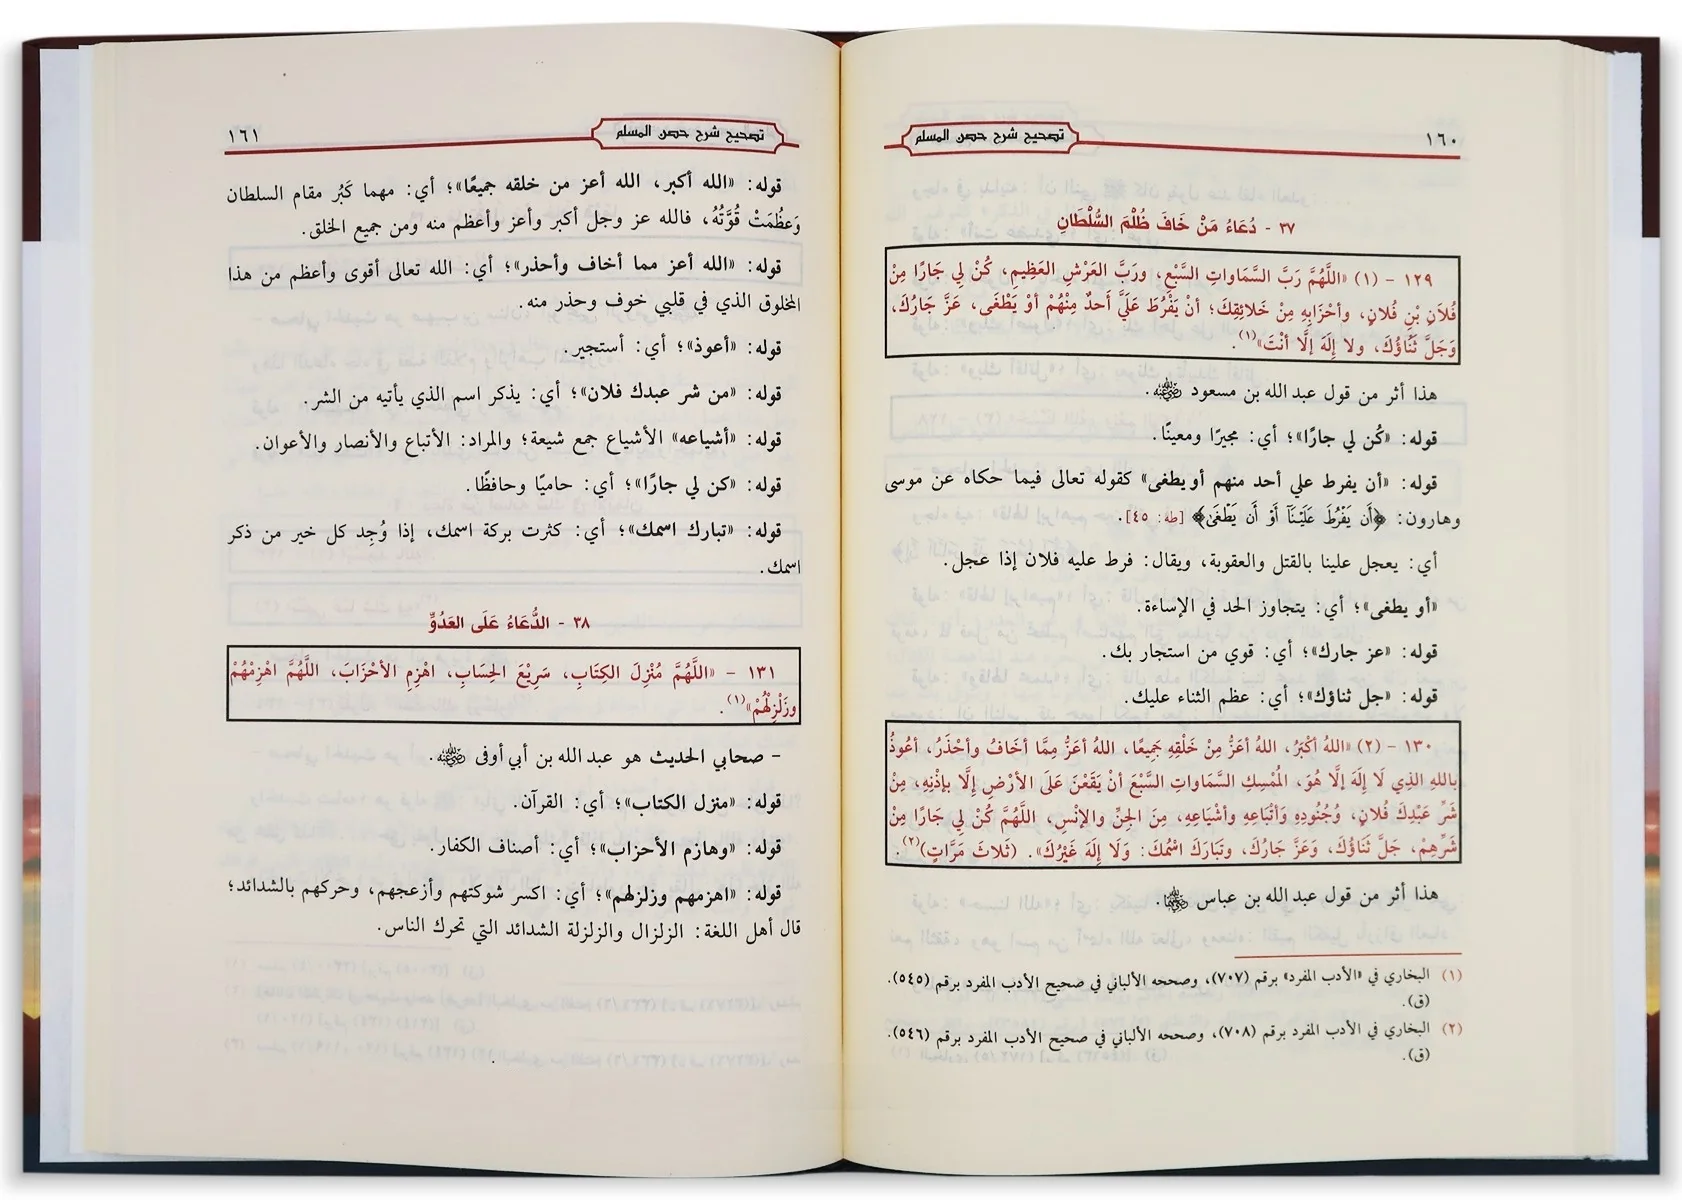 تصحيح شرح حصن المسلم
١٦٠
٣٧ - دُعَاءُ مَنْ خَافَ ظُلْمَ السُّلْطَانِ
١٢٩ - (١) «اللَّهُمَّ رَبَّ السَّمَاواتِ السَّبْعِ، ورَبَّ العَرْشِ العَظِيمِ، كُنْ لِي جَارًا مِنْ
فُلَانِ بْنِ فُلانٍ، وأحْزَابِهِ مِنْ خَلائِقِكَ؛ أنْ يَفْرُطَ عَلَيَّ أحَدٌ مِنْهُمْ أوْ يَطْغَى، عَزَّ جَارُكَ،
وَجَلَّ ثَنَاؤُكَ، ولا إلَهَ إلَّا أنْتَ»(١).
هذا أثر من قول عبد الله بن مسعود رضي الله عنه.
قوله: «كُن لي جارًا»؛ أي: مجيرًا ومعينًا.
قوله: «أن يفرط علي أحد منهم أو يطغى» كقوله تعالى فيما حكاه عن موسى
وهارون: ﴿أَن يَفْرُطَ عَلَيْنَآ أَوْ أَن يَطْغَىٰ﴾ [طه: ٤٥].
أي: يعجل علينا بالقتل والعقوبة، ويقال: فرط عليه فلان إذا عجل.
«أو يطغى»؛ أي: يتجاوز الحد في الإساءة.
قوله: «عز جارك»؛ أي: قوي من استجار بك.
قوله: «جل ثناؤك»؛ أي: عظم الثناء عليك.
١٣٠ - (٢) «اللهُ أكْبَرُ، اللهُ أعَزُّ مِنْ خَلْقِهِ جَمِيعًا، اللهُ أعَزُّ مِمَّا أخَافُ وأحْذَرُ، أعُوذُ
باللهِ الذِي لَا إلَهَ إلَّا هُوَ، المُمْسِكِ السَّمَاواتِ السَّبْعَ أنْ يَقَعْنَ عَلَى الأرْضِ إلَّا بِإذْنِهِ، مِنْ
شَرِّ عَبْدِكَ فُلَانٍ، وُجُنُودِهِ وَأتْبَاعِهِ وأشْيَاعِهِ، مِنَ الجِنِّ والإنْسِ، اللَّهُمَّ كُنْ لِي جَارًا مِنْ
شَرِّهِمْ، جَلَّ ثَنَاؤُكَ، وَعَزَّ جَارُكَ، وتَبَارَكَ اسْمُكَ: وَلَا إلَهَ غَيْرُكَ». (ثَلاثَ مَرَّاتٍ)(٢).
هذا أثر من قول عبد الله بن عباس رضي الله عنهما.
(١) البخاري في «الأدب المفرد» برقم (٧٠٧)، وصححه الألباني في صحيح الأدب المفرد برقم (٥٤٥).
(ق).
(٢) البخاري في الأدب المفرد برقم (٧٠٨)، وصححه الألباني في صحيح الأدب المفرد برقم (٥٤٦).
(ق).
تصحيح شرح حصن المسلم
١٦١
قوله: «الله أكبر، الله أعز من خلقه جميعًا»؛ أي: مهما كَبُر مقام السلطان
وَعظُمَتْ قُوَّتُهُ، فالله عز وجل أكبر وأعز وأعظم منه ومن جميع الخلق.
قوله: «الله أعز مما أخاف وأحذر»؛ أي: الله تعالى أقوى وأعظم من هذا
المخلوق الذي في قلبي خوف وحذر منه.
قوله: «أعوذ»؛ أي: أستجير.
قوله: «من شر عبدك فلان»؛ أي: يذكر اسم الذي يأتيه من الشر.
قوله: «أشياعه» الأشياع جمع شيعة؛ والمراد: الأتباع والأنصار والأعوان.
قوله: «كن لي جارًا»؛ أي: حاميًا وحافظًا.
قوله: «تبارك اسمك»؛ أي: كثرت بركة اسمك، إذا وُجِد كل خير من ذكر
اسمك.
٣٨ - الدُّعَاءُ عَلَى العَدُوِّ
١٣١ - «اللَّهُمَّ مُنْزِلَ الكِتَابِ، سَرِيْعَ الحِسَابِ، اهْزِمِ الأحْزَابَ، اللَّهُمَّ اهْزِمْهُمْ
وزَلْزِلْهُمْ»(١).
- صحابي الحديث هو عبد الله بن أبي أوفى رضي الله عنه.
قوله: «منزل الكتاب»؛ أي: القرآن.
قوله: «وهازم الأحزاب»؛ أي: أصناف الكفار.
قوله: «اهزمهم وزلزلهم»؛ أي: اكسر شوكتهم وأزعجهم، وحركهم بالشدائد؛
قال أهل اللغة: الزلزال والزلزلة الشدائد التي تحرك الناس.